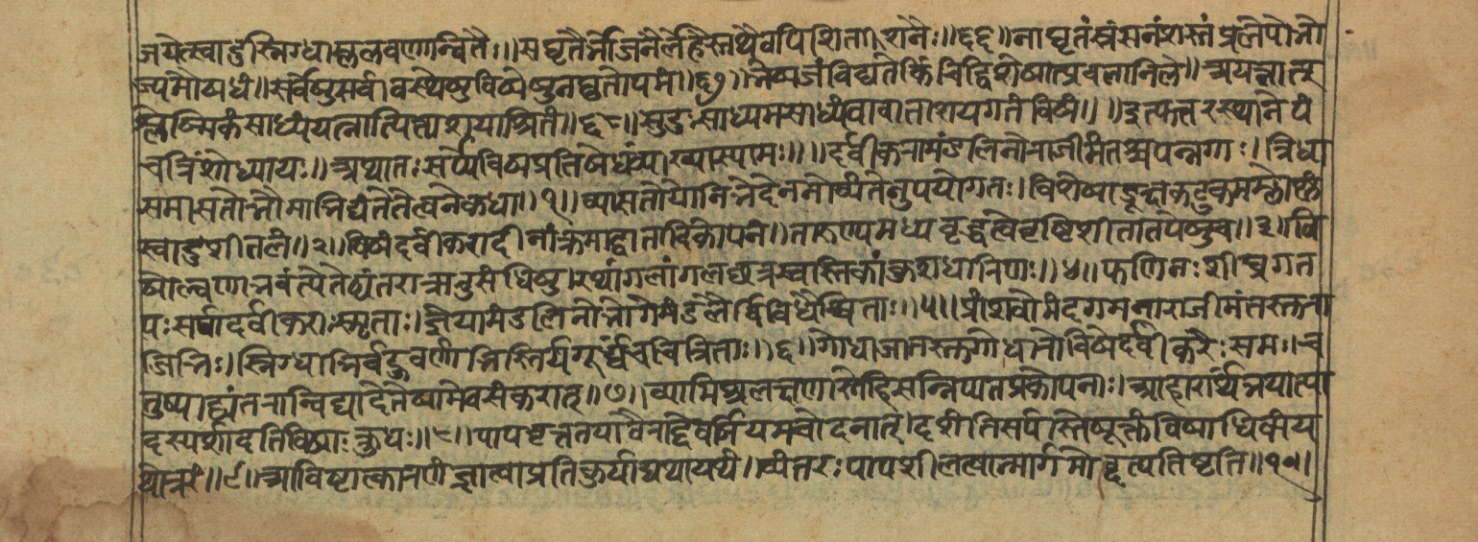 जयेत्स्वाडुस्निग्धाम्ललवणान्वितैः॥सघृतैर्भोजनैर्लेहैस्तथैवपिशिताशनैः॥६६॥नाघृतंस्रंसनंशस्तंप्रलेपोभो
ज्यमौषधं॥सर्वेषुसर्वावस्थेषुविषेषुनघृतोपमं॥६७॥भेषजंविद्यतेकिंचिद्विशेषात्प्रबलानिले॥अयत्नात्
श्लैष्मिकंसाध्यंयत्नात्पित्ताशयाश्रितं॥६८॥सुदुःसाध्यमसाध्यंवावाताशयगतंविषं॥॥इत्युत्तरस्थानेपं
चत्रिंशोध्यायः॥अथातःसर्पविषप्रतिषेधंव्याख्यास्यामः॥॥दर्वीकरामंडलिनोराजीमंतश्चपन्नगाः।त्रिधा
समासतोभौमाभिद्यंतेतेत्वनेकधा॥१॥व्यासतोयोनिभेदेननोच्यंतेनुपयोगतः।विशेषाद्रूक्षकटुकमम्लोष्णं
स्वाडुशीतलं॥२॥विषंदर्वीकरादीनांक्रमाद्वातादिकोपनं॥तारुण्यमध्यवृद्धत्वेवृष्टिशीतातपेषुच॥३॥वि
षोल्बणाभवंत्येतेव्यंतराऋतुसंधिषु।रथांगलांगलछत्रस्वस्तिकांकुशधारिणः॥४॥फणिनःशीघ्रगत
यःसर्पादर्वीकराःस्मृताः।ज्ञेयामंडलिनोभोगेमंडलैर्विविधैश्चिताः॥५॥प्रांशवोमंदगमनाराजीमंतस्तुरा
जिभिः।स्निग्धाभिर्बहुवर्णाभिस्तिर्यगूर्ध्वंचचित्रिताः॥६॥गोधाजातस्तुगौधेरोविषेदर्वीकरैःसमः।च
तुष्पाद्व्यंतरान्विद्यादेतेषामेवसंकरात्॥७॥व्यामिश्रलक्षणास्तेहिसन्निपातप्रकोपनाः।आहारार्थंभयात्पा
दस्पर्शादतिविषाःक्रुधः॥८॥पापवृत्ततयावैराद्देवर्षियमचोदनात्।दशंतिसर्पास्तेषूक्तंविषाधिक्यंय
थोत्तरं॥९॥आदिष्टात्कारणंज्ञात्वाप्रतिकुर्याद्यथायथं।व्यंतरःपापशीलत्वान्मार्गमाश्रत्यतिष्ठति॥१०॥